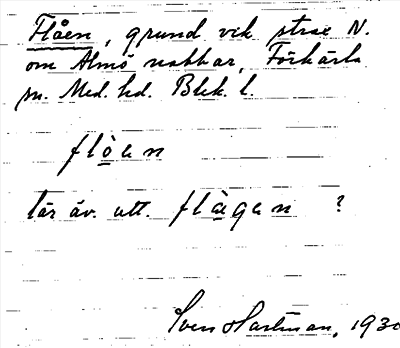 Flåen, grund vik strax N.
om Almö nabbar, Förkärla
sn. Med. hd. Blek. l.
flòen
lär äv. utt. flàgen ?
Sven Hartman, 1930